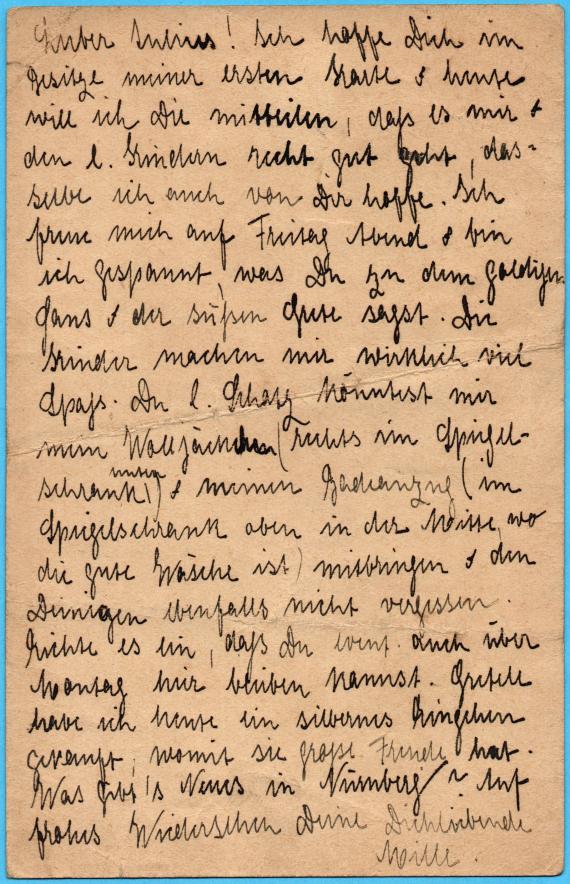 Lieber Julius! Ich hoffe Dich im
Besitze meiner ersten Karte & heute
will ich Dir mitteilen, daß es mir &
den l. Kindern recht gut geht, das-
selbe ich auch von Dir hoffe. Ich
freue mich auf Freitag Abend & bin
ich gespannt, was Du zu dem goldigen
Hans & der süßen Grete sagst. Die
Kinder machen mir wirklich viel
Spaß. Du l. Schatz könntest mir
mein Wolljäckchen (rechts im Spiegel-
schrank unten!) & meinen Badeanzug (im
Spiegelschrank oben in der Mitte, wo
die gute Wäsche ist) mitbringen & den
Deinigen ebenfalls nicht vergessen.
Richte es ein, daß Du event. auch über
Montag hier bleiben kannst. Gretele
habe ich heute ein silbernes Ringchen
gekauft, womit sie große Freude hat.
Was gibt's Neues in Nürnberg? Auf
frohes Wiedersehen Deine Dichliebende
Mille.